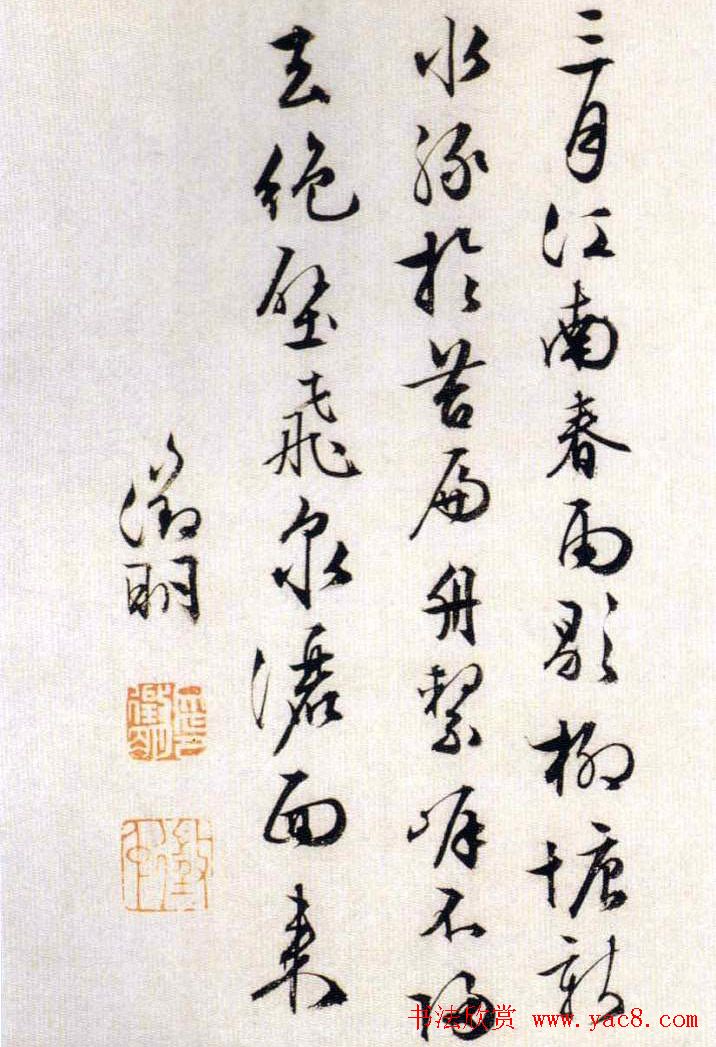 三月江南春雨歇柳塘新
水綠於苔扁舟繫岸不歸
去絕壁飛泉灑面來
徵明
书法欣赏 www.yac8.com